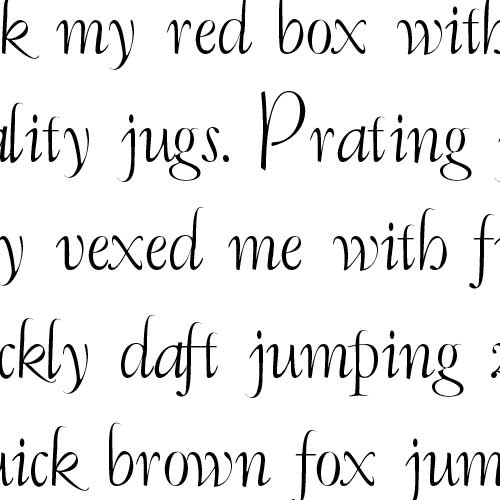 k my red box with
ality jugs. Prating
y vexed me with f
ckly daft jumping
uick brown fox jum